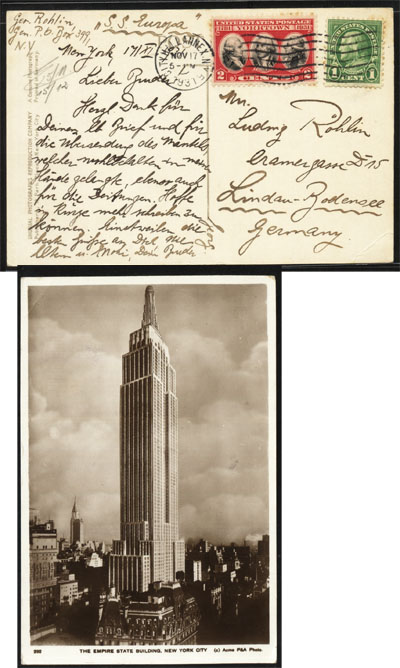 Geo. Rohlin
Gen. P.O. Box 349
N.Y.
"S.S. Europa"
New York, 17/11
Lieber Bruder
Herzl. Dank für
Deinen lb. Brief und für
die Zusendung des Mantels,
welcher in meine
Hände gelangte, ebenso auch
für die Hoffe
in Kürze mehr schreiben zu
können. Einstweilen die
besten Grüsse an Dich, die
Eltern u. Dein Bruder
Georg
NOV 17
5-PM
1931
UNITED STATES POSTAGE
1781 YORKTOWN 1931
2 2
1 1
Mr.
Ludwig Rohlin
Cramergasse D 15
Lindau-Bodensee
Germany
990 THE EMPIRE STATE BUILDING, NEW YORK CITY (c) Acme P&A Photo.